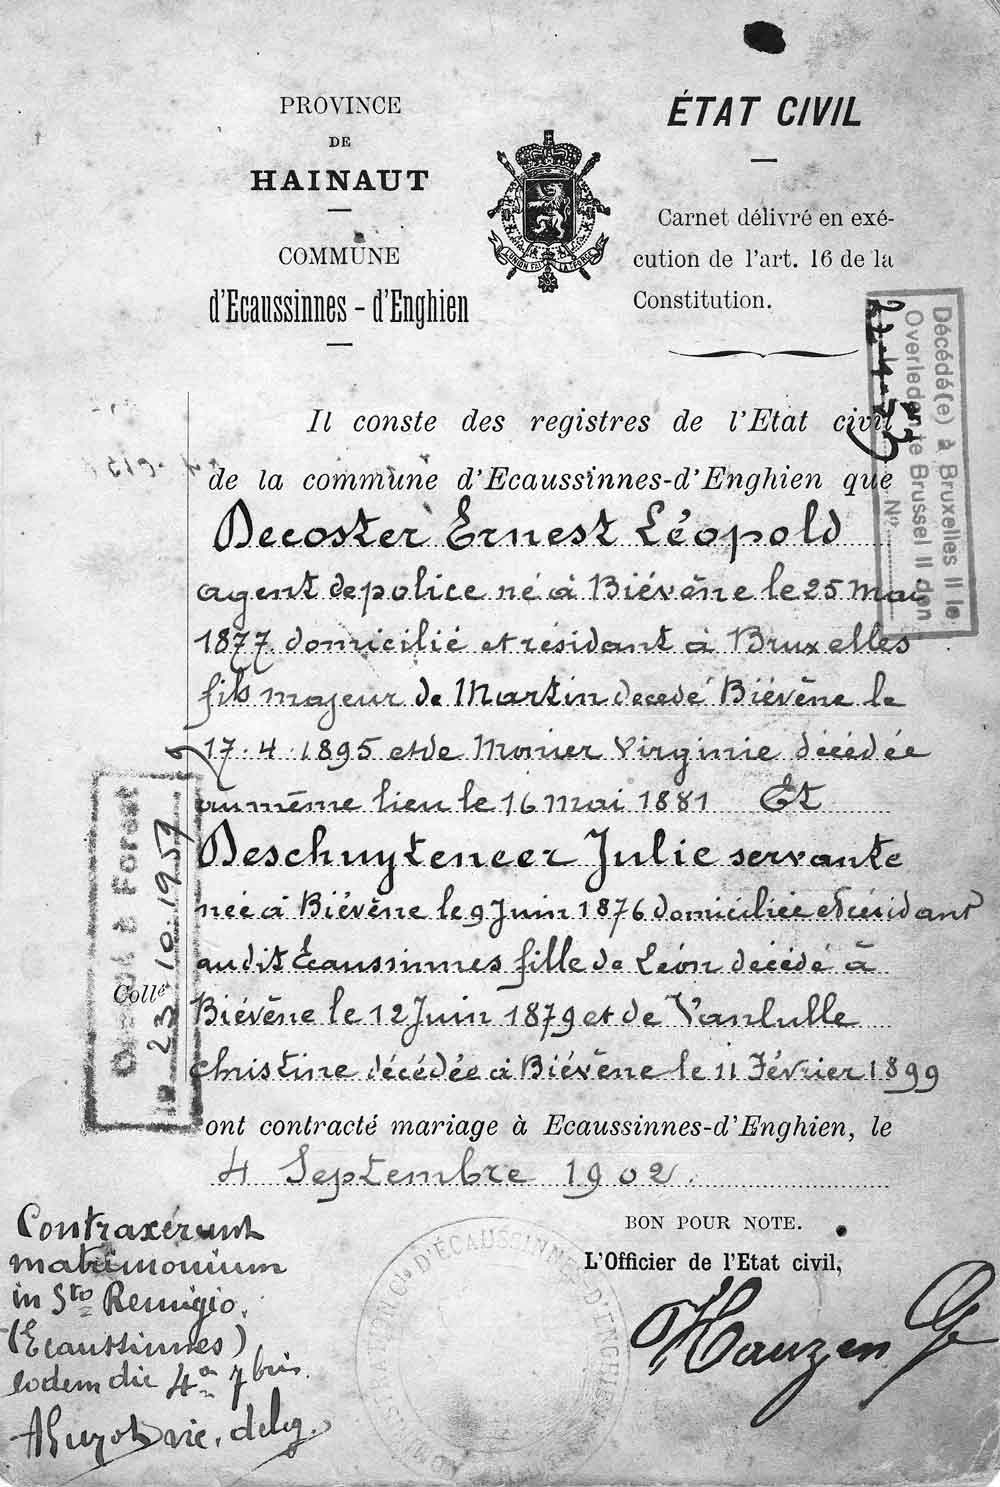 PROVINCE
DE
HAINAUT
COMMUNE
d'Ecaussinnes - d'Enghien
L'UNION FAIT LA FORCE
ÉTAT CIVIL
Carnet délivré en exé-
cution de l'art. 16 de la
Constitution.
Décédé(e) à Bruxelles II le
Overleden te Brussel II den
Nº
Il conste des registres de l'Etat civil
de la commune d'Ecaussinnes-d'Enghien que
Decoster Ernest Léopold
agent de police né à Biévène le 25 Mai
1877 domicilié et résidant à Bruxelles
fils majeur de Martin decedé Biévène le
17.4.1895 et de Monier Virginie décédée
au même lieu le 16 mai 1881 Et
Deschuyteneer Julie servante
née à Biévène le 9 Juin 1876 domiciliée et résidant
audit Ecaussinnes fille de Léon décédé à
Biévène le 12 Juin 1879 et de Vanlulle
christine décédée à Biévène le 11 Février 1899
ont contracté mariage à Ecaussinnes-d'Enghien, le
4 Septembre 1902.
à Forest
le 23.10.1959
Collé
BON POUR NOTE.
L'Officier de l'Etat civil,
Hauzen G
ADMINISTRATION Cle D'ÉCAUSSINNES-D'ENGHIEN
Contraxérunt
matrimonium
in Sto Remigio.
(Ecaussinnes)
eodem die 4a 7bris.
vic. deleg.